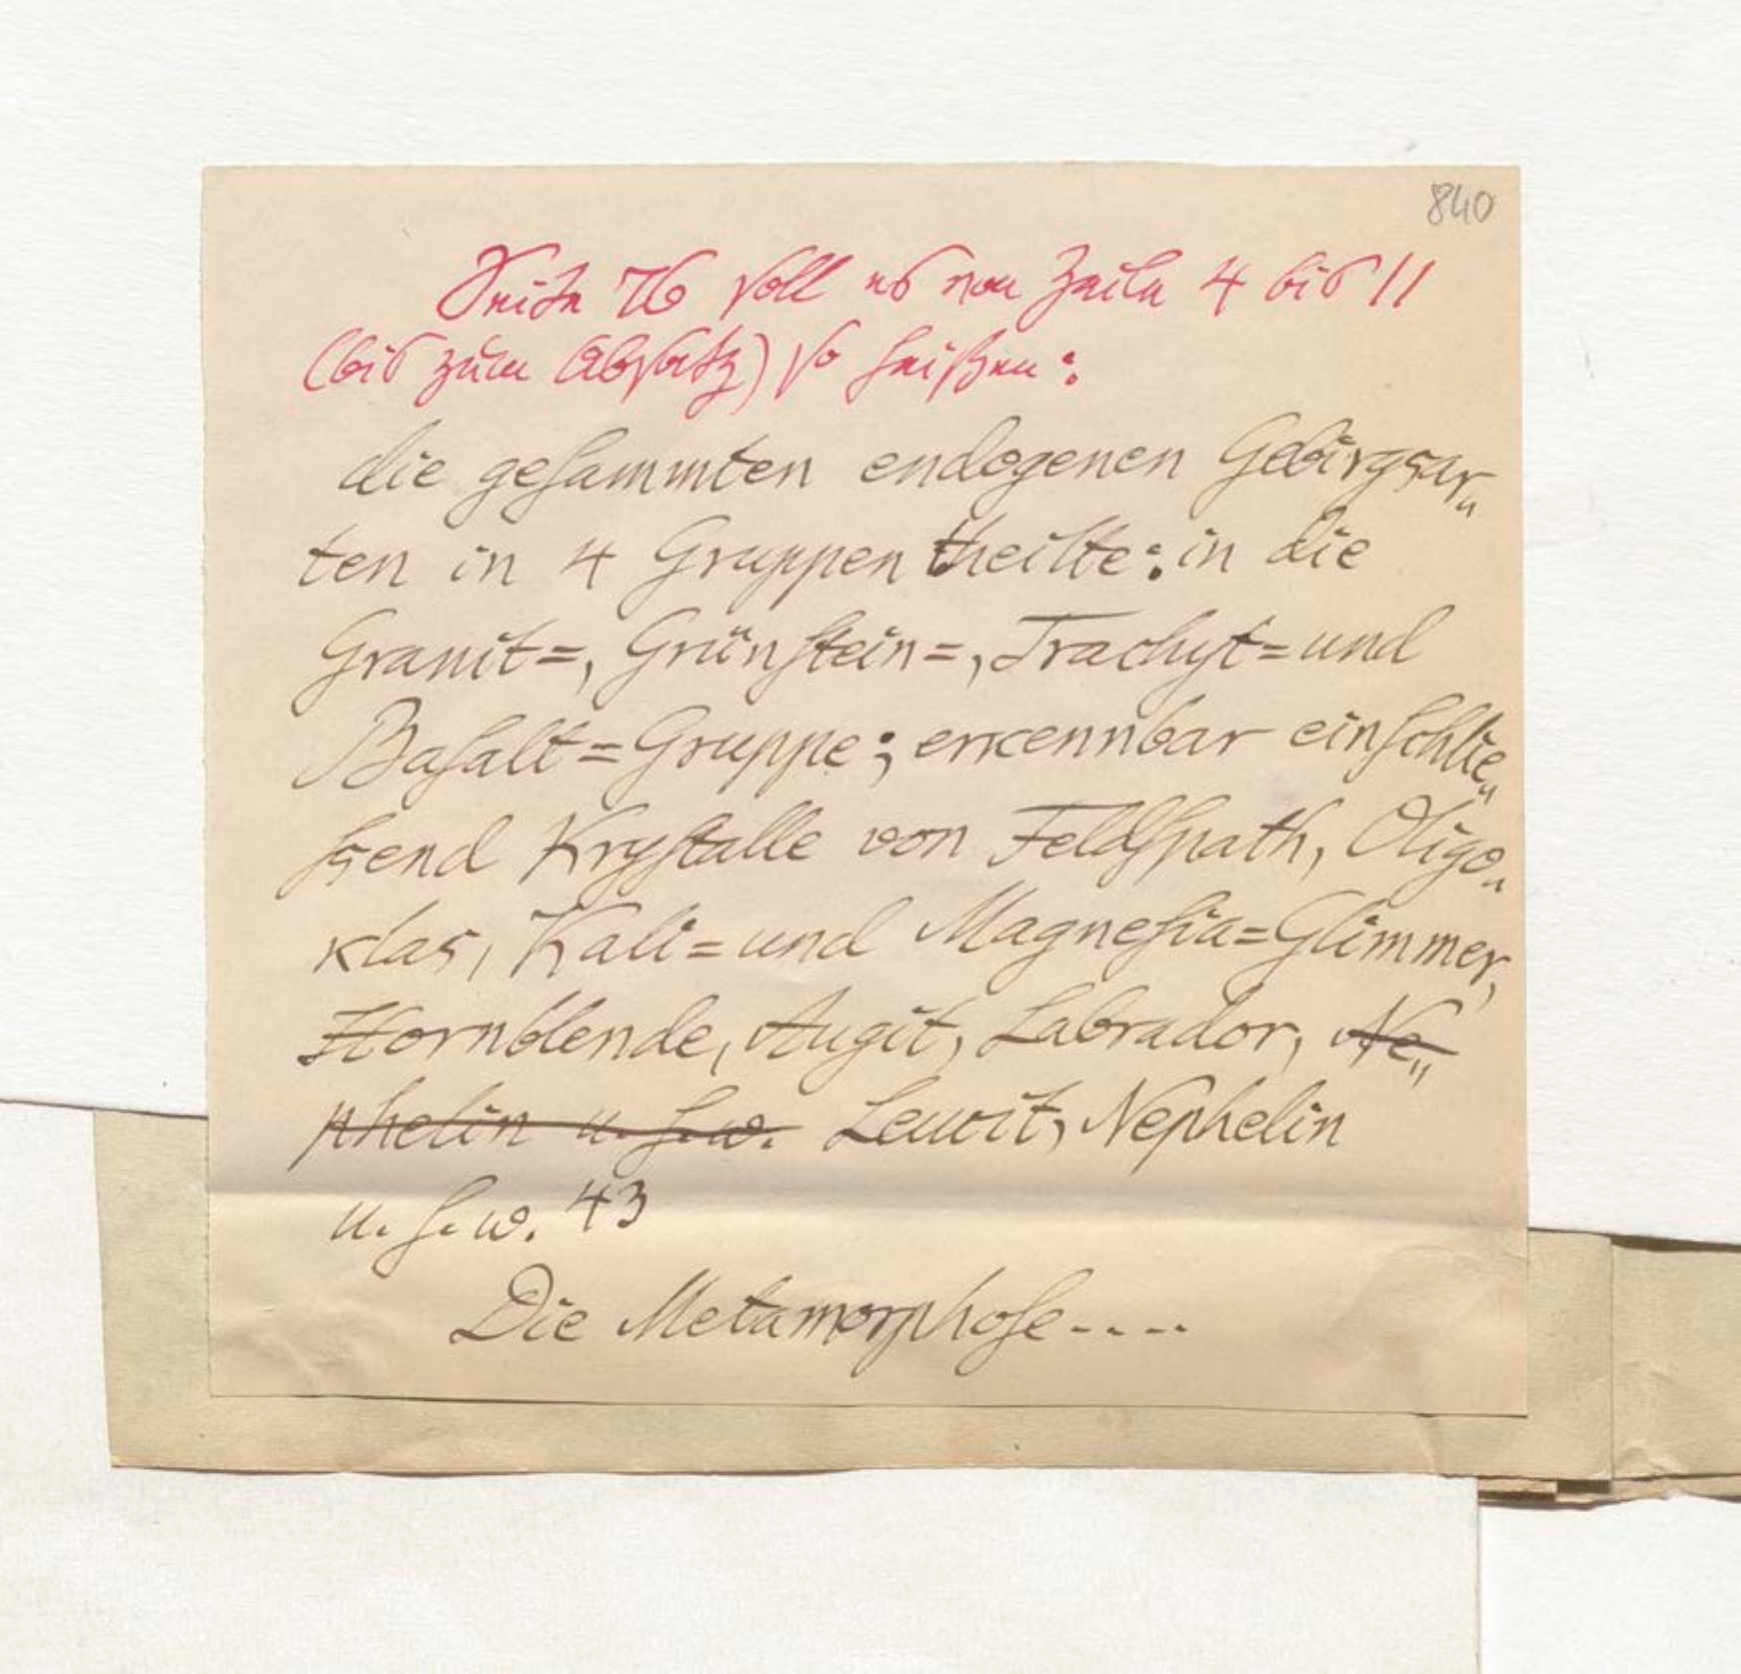 840
Seite 76 soll es von Zeile 4 bis 11
(bis zum Absatz) so heißen:
die geſammten endogenen Gebirgsar„
ten in 4 Gruppen theilte: in die
Granit=, Grünſtein=, Trachyt= und
Baſalt=Gruppe; erkennbar einſchlie„
ſsend Kryſtalle von Feldſpath, Oligo„
klas, Kali= und Magneſia=Glimmer,
Hornblende, Augit, Labrador, Ne„
phelin u. ſ. w. Leucit, Nephelin
u. ſ. w. 43
Die Metamorphoſe----